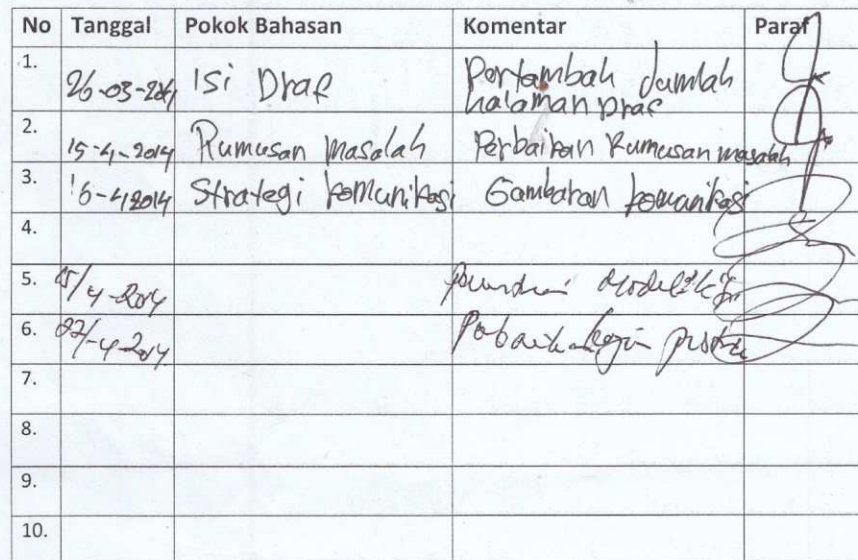 No Tanggal Pokok Bahasan Komentar Paraf
1. 26-03-2014 Isi Draf Pertambah Jumlah
halaman Draf
2. 15-4-2014 Rumusan masalah Perbaikan Rumusan masalah
3. 16-4-2014 Strategi komunikasi Gambaran komunikasi
4.
5. /4-2014
6. /-4-2014
7.
8.
9.
10.